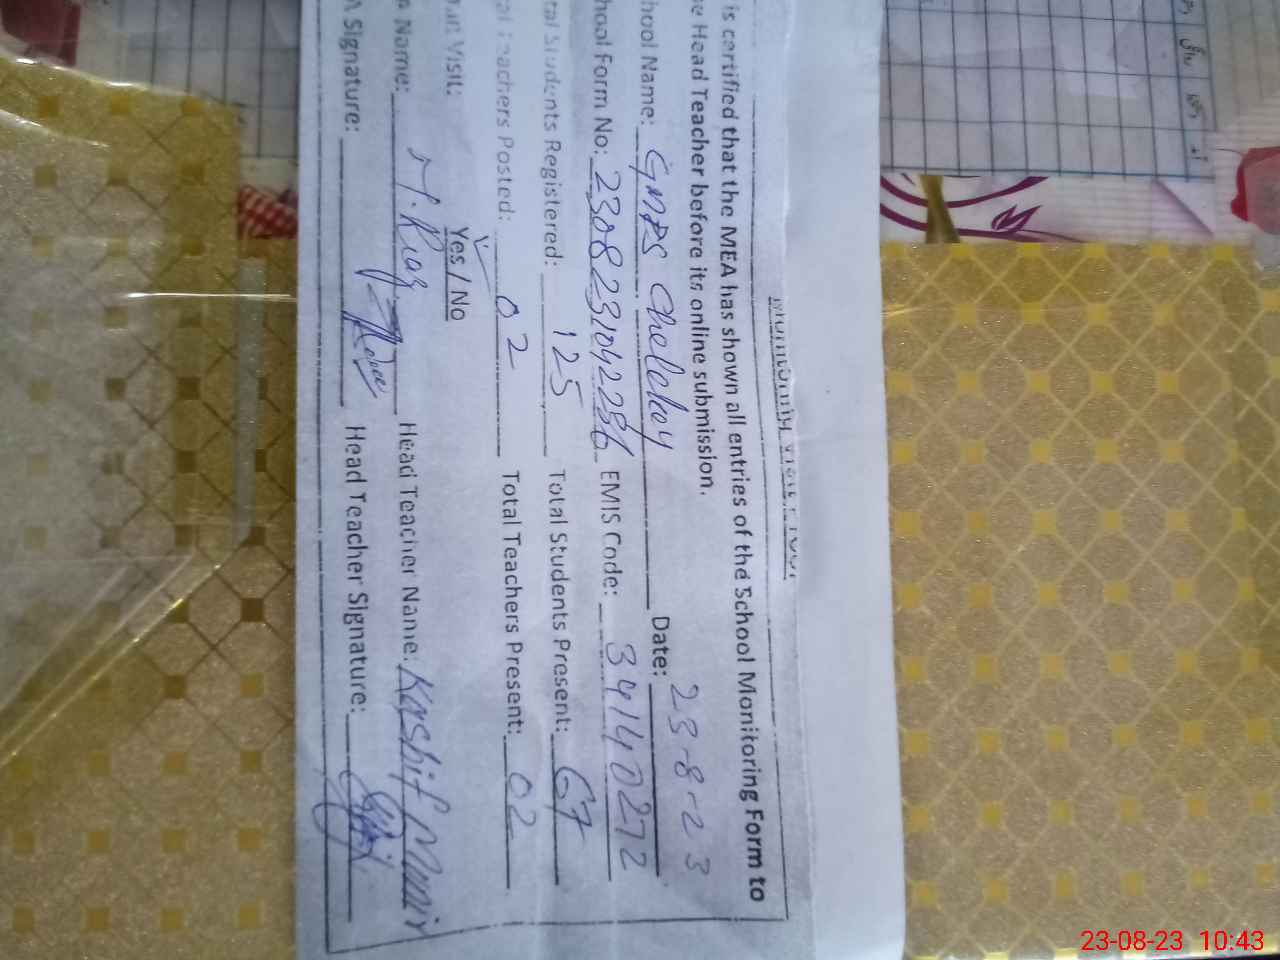 Monitoring Visit Proof
is certified that the MEA has shown all entries of the School Monitoring Form to
e Head Teacher before its online submission.
hool Name: GMPS Chelekey Date: 23-8-23
hool Form No: 2308231042286 EMIS Code: 34140272
tal Students Registered: 125 Total Students Present: 67
al Teachers Posted: 02 Total Teachers Present: 02
Visit: Yes / No
Name: M. Riaz Head Teacher Name: Kashif Munir
A Signature: Head Teacher Signature:
23-08-23 10:43